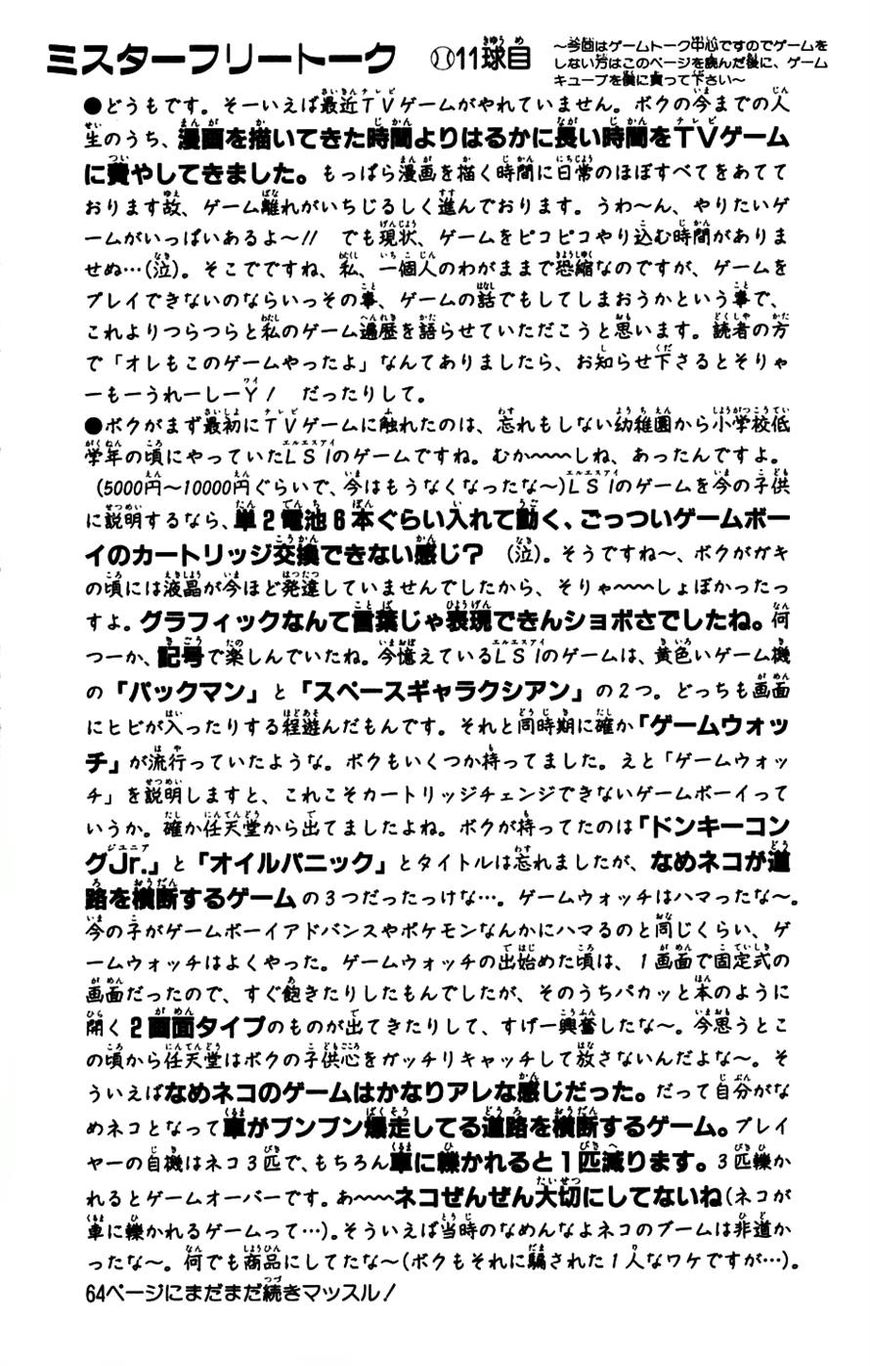 ミスターフリートーク ⚾11球目
～今回はゲームトーク中心ですのでゲームを
しない方はこのページを読んだ後に、ゲーム
キューブを僕に貢って下さい～
●どうもです。そーいえば最近TVゲームがやれていません。ボクの今までの人
生のうち、漫画を描いてきた時間よりはるかに長い時間をTVゲーム
に費やしてきました。もっぱら漫画を描く時間に日常のほぼすべてをあてて
おります故、ゲーム離れがいちじるしく進んでおります。うわ～ん、やりたいゲ
ームがいっぱいあるよ～!! でも現状、ゲームをピコピコやり込む時間がありま
せぬ…(泣)。そこでですね、私、一個人のわがままで恐縮なのですが、ゲームを
プレイできないのならいっその事、ゲームの話でもしてしまおうかという事で、
これよりつらつらと私のゲーム遍歴を語らせていただこうと思います。読者の方
で「オレもこのゲームやったよ」なんてありましたら、お知らせ下さるとそりゃ
ーもーうれーしーY! だったりして。
●ボクがまず最初にTVゲームに触れたのは、忘れもしない幼稚園から小学校低
学年の頃にやっていたLSIのゲームですね。むか～～～しね、あったんですよ。
(5000円～10000円ぐらいで、今はもうなくなったな～)LSIのゲームを今の子供
に説明するなら、単2電池6本ぐらい入れて動く、ごっついゲームボー
イのカートリッジ交換できない感じ? (泣)。そうですね～、ボクがガキ
の頃には液晶が今ほど発達していませんでしたから、そりゃ～～～しょぼかったっ
すよ。グラフィックなんて言葉じゃ表現できんショボさでしたね。何
つーか、記号で楽しんでいたね。今憶えているLSIのゲームは、黄色いゲーム機
の「パックマン」と「スペースギャラクシアン」の2つ。どっちも画面
にヒビが入ったりする程遊んだもんです。それと同時期に確か「ゲームウォッ
チ」が流行っていたような。ボクもいくつか持ってました。えと「ゲームウォッ
チ」を説明しますと、これこそカートリッジチェンジできないゲームボーイって
いうか。確か任天堂から出てましたよね。ボクが持ってたのは「ドンキーコン
グJr.」と「オイルパニック」とタイトルは忘れましたが、なめネコが道
路を横断するゲームの3つだったっけな…。ゲームウォッチはハマったな～。
今の子がゲームボーイアドバンスやポケモンなんかにハマるのと同じくらい、ゲ
ームウォッチはよくやった。ゲームウォッチの出始めた頃は、1画面で固定式の
画面だったので、すぐ飽きたりしたもんでしたが、そのうちパカッと本のように
開く2画面タイプのものが出てきたりして、すげー興奮したな～。今思うとこ
の頃から任天堂はボクの子供心をガッチリキャッチして放さないんだよな～。そ
ういえばなめネコのゲームはかなりアレな感じだった。だって自分がな
めネコとなって車がブンブン爆走してる道路を横断するゲーム。プレイ
ヤーの自機はネコ3匹で、もちろん車に轢かれると1匹減ります。3匹轢か
れるとゲームオーバーです。あ～～～ネコぜんぜん大切にしてないね(ネコが
車に轢かれるゲームって…)。そういえば当時のなめんなよネコのブームは非道か
ったな～。何でも商品にしてたな～(ボクもそれに騙された1人なワケですが…)。
64ページにまだまだ続きマッスル!